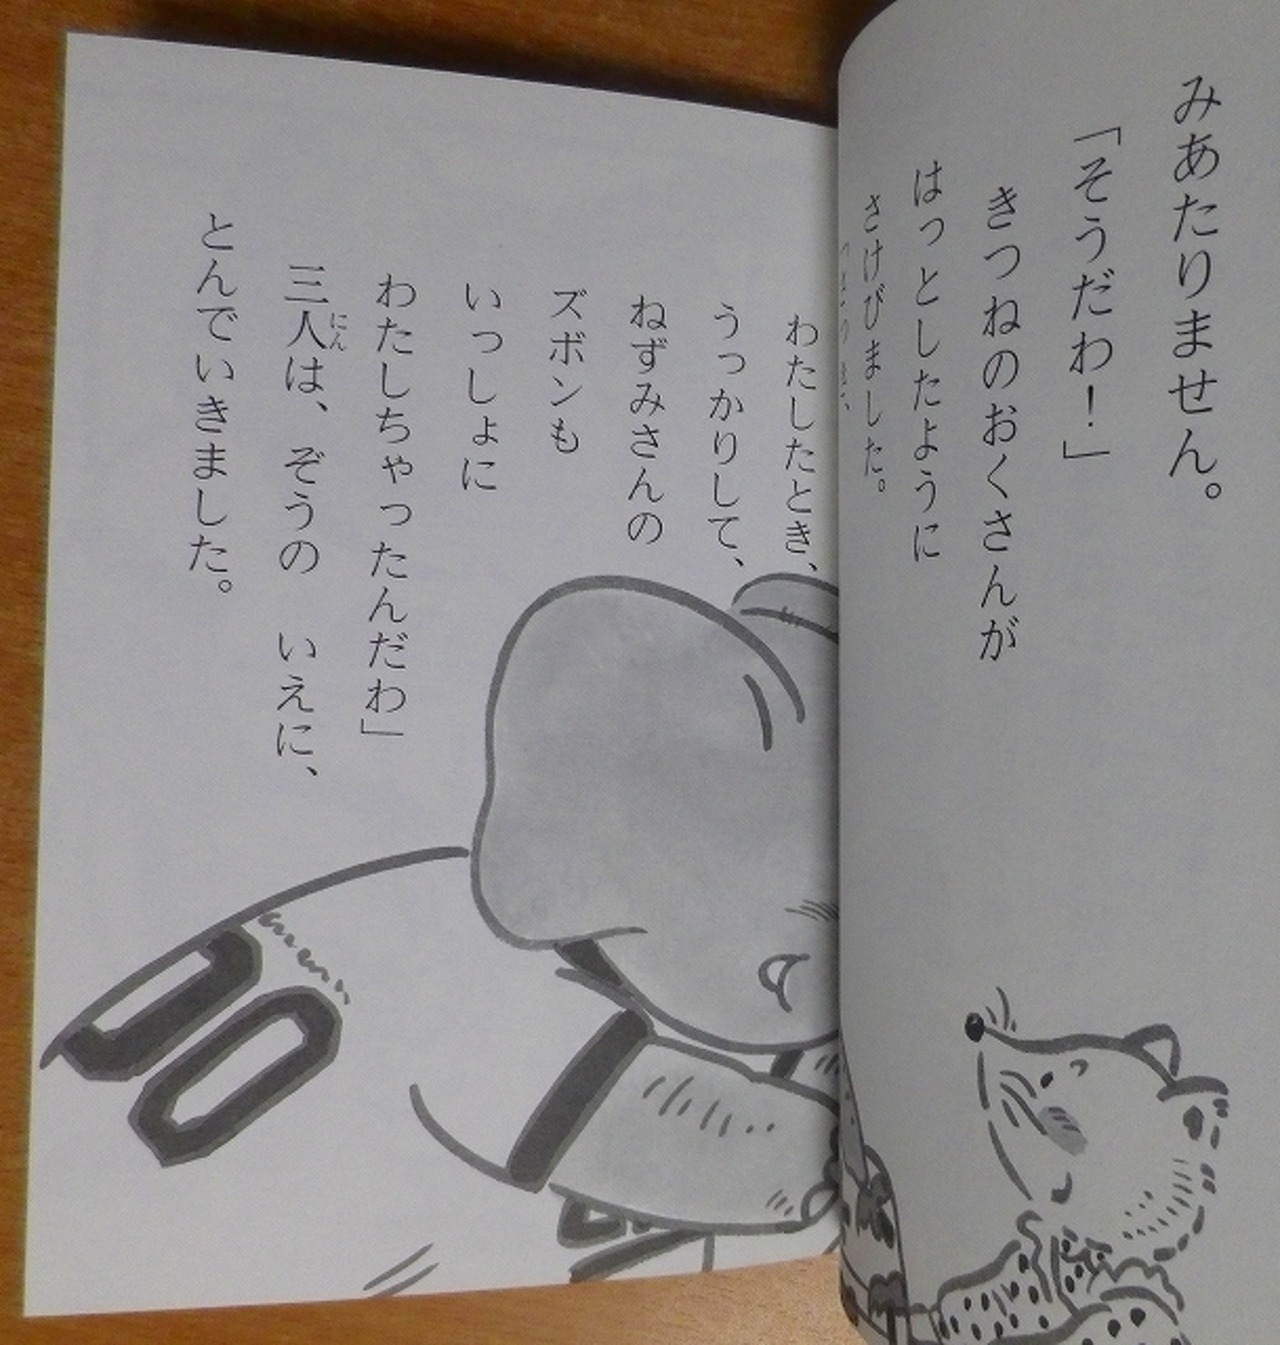 みあたりません。
「そうだわ！」
きつねのおくさんが
はっとしたように
さけびました。
わたしたとき、
うっかりして、
ねずみさんの
ズボンも
いっしょに
わたしちゃったんだわ」
三人は、ぞうの　いえに、
にん
とんでいきました。